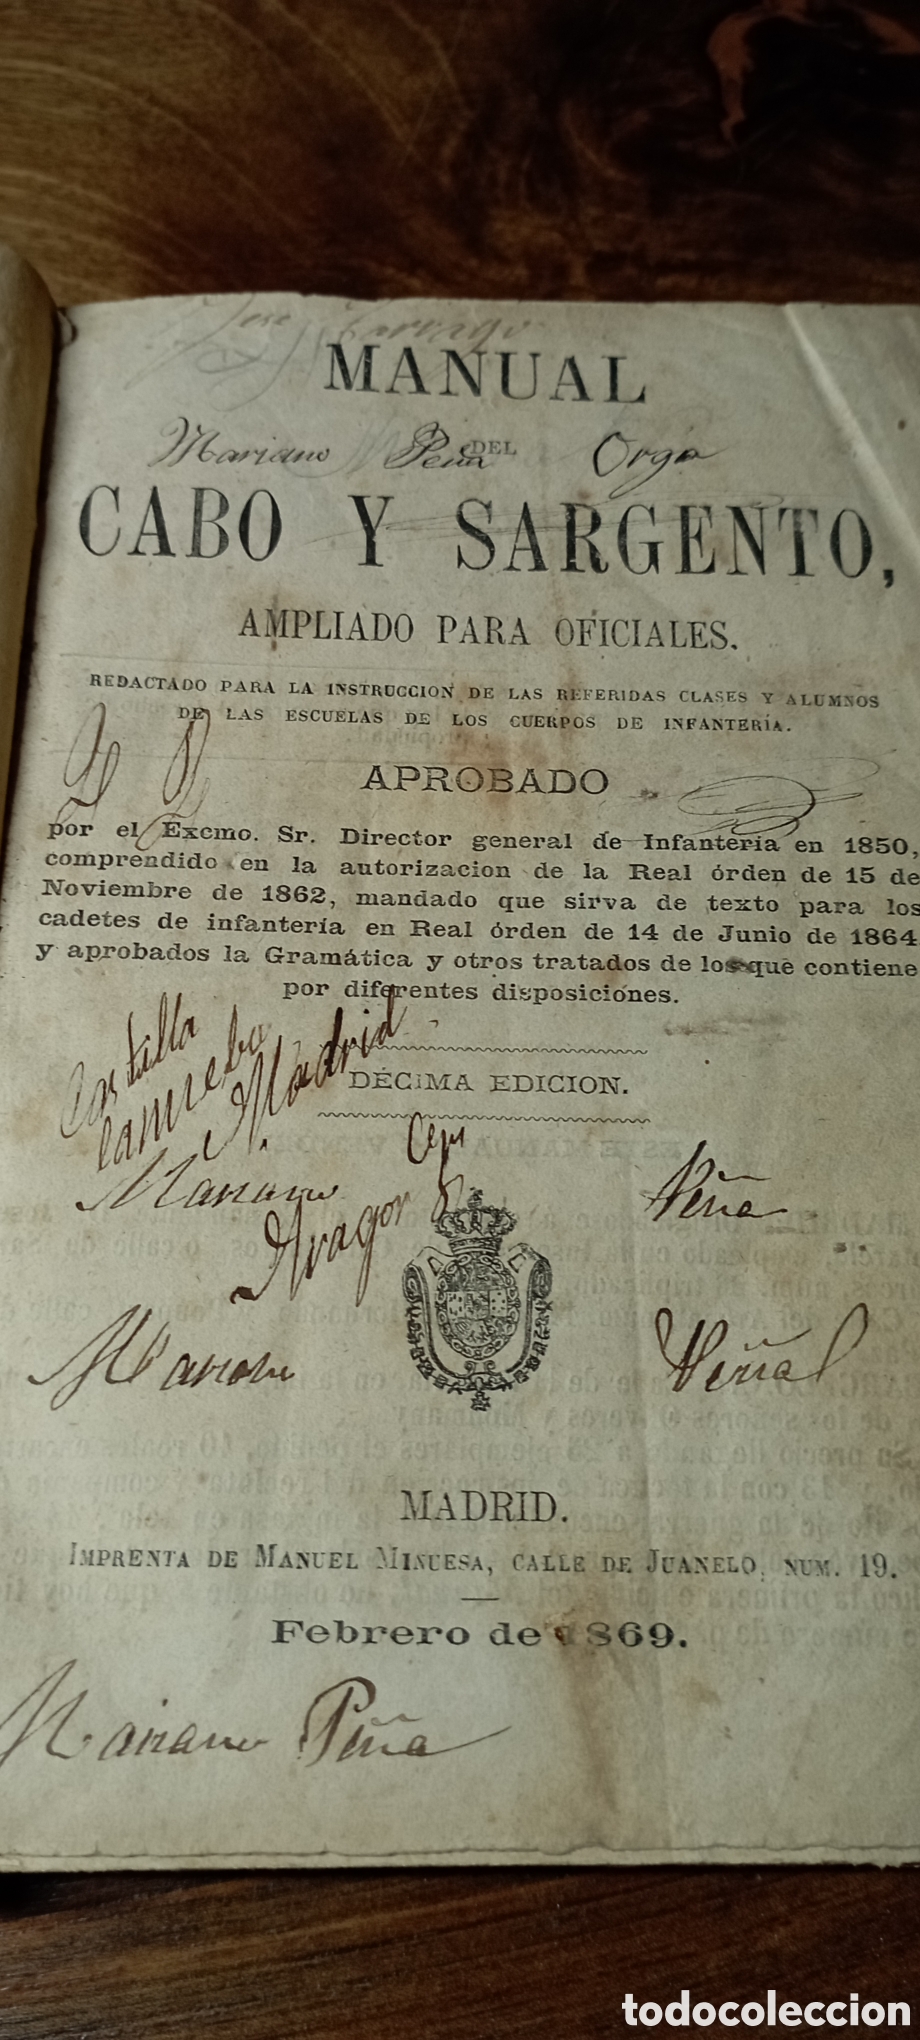 Jose
MANUAL
Mariano Peña DEL Orga
CABO Y SARGENTO,
AMPLIADO PARA OFICIALES.
REDACTADO PARA LA INSTRUCCION DE LAS REFERIDAS CLASES Y ALUMNOS
DE LAS ESCUELAS DE LOS CUERPOS DE INFANTERÍA.
APROBADO
por el Excmo. Sr. Director general de Infantería en 1850,
comprendido en la autorizacion de la Real órden de 15 de
Noviembre de 1862, mandado que sirva de texto para los
cadetes de infantería en Real órden de 14 de Junio de 1864
y aprobados la Gramática y otros tratados de los que contiene
por diferentes disposiciones.
Castilla
la nueba
Madrid
DÉCIMA EDICION.
Mariano Peña
Aragon
Mariano
MADRID.
IMPRENTA DE MANUEL MINUESA, CALLE DE JUANELO, NUM. 19.
Febrero de 1869.
Mariano Peña
todocoleccion